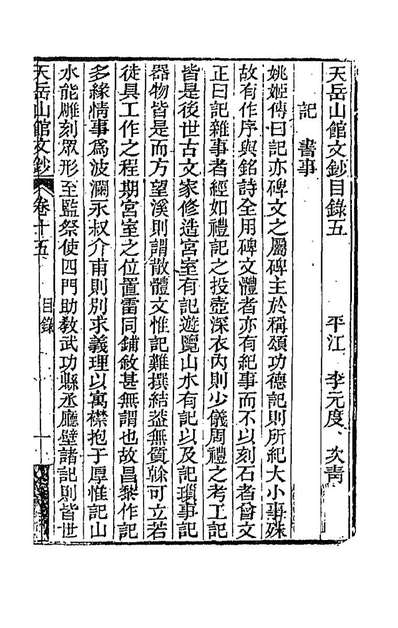 天岳山館文鈔目錄五
平江 李元度 次靑
記 書事
姚姬傳曰記亦碑文之屬碑主於稱頌功德記則所紀大小事殊
故有作序與銘詩全用碑文體者亦有紀事而不以刻石者曾文
正曰記雜事者經如禮記之投壺深衣內則少儀周禮之考工記
皆是後世古文家修造宮室有記遊覽山水有記以及記瑣事記
器物皆是而方望溪則謂散體文惟記難撰結葢無質榦可立若
徒具工作之程期宮室之位置雷同鋪敘甚無謂也故昌黎作記
多緣情事爲波瀾永叔介甫則別求義理以寓襟抱于厚惟記山
水能雕刻眾形至監祭使四門助教武功縣丞廳壁諸記則皆世
天岳山館文鈔
卷十五
目錄
一